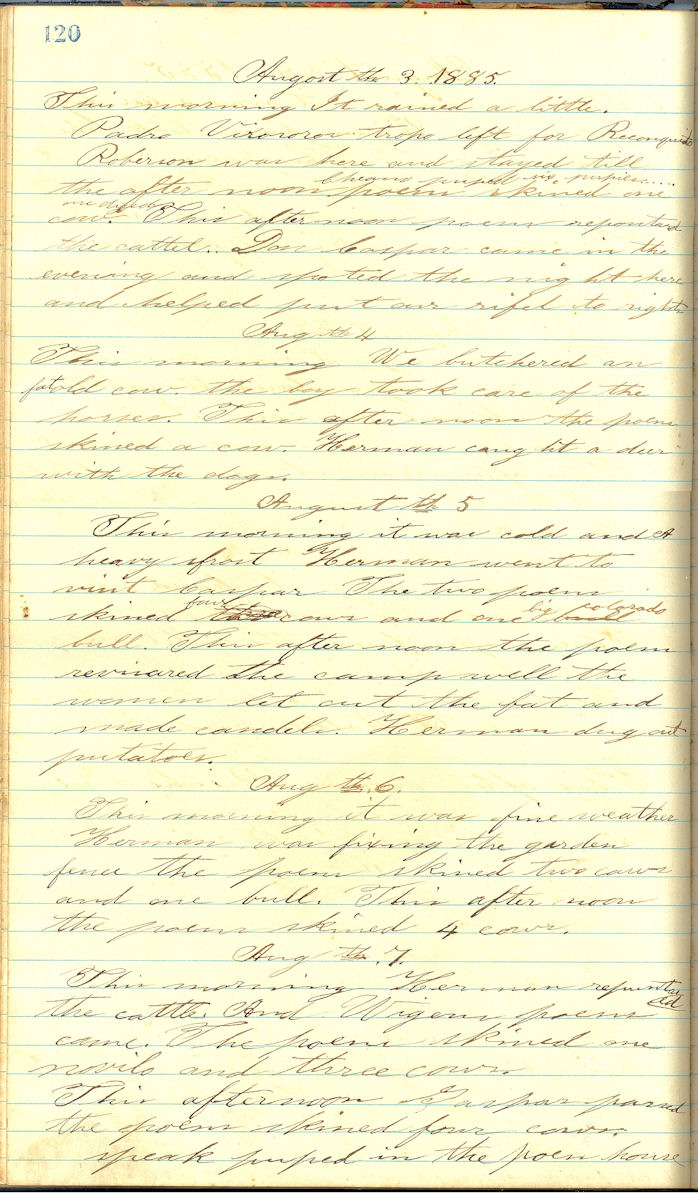 120
August th 3. 1885.
This morning It rained a little.
Padro trops left for
Roberson was here and stayed till
Cheano puped six pupies....
the after noon poem skined one
one dyed
cow. This afternoon poem repontard
the cattel.. Don Caspar came in the
evening and spoted the night here
and helped put our rifel to rights
Aug th 4
This morning We butchered an
fat old cow. the boy took care of the
horses. This after noon the poem
skined a cow. Herman caught a deer
with the dogs.
August th 5
This morning it was cold and A
heavy frost Herman went to
visit Caspar The two poem
four big colorado
skined cows and one bull
bull. This after noon the poem
revisared the camp well the
women let out the fat and
made candels. Herman dug out
putatoes.
Aug th. 6.
This morning it was fine weather
Herman was fixing the garden
fence the poem skined two cows
and one bull. This after noon
the poem skined 4 cows.
Aug th. 7.
This morning Herman repuntar
ed
the cattle. And Wigem poem
came. The poem skined one
novilo and three cows
This afternoon Gaspar passed
the poem skined four cows.
speak puped in the poen house